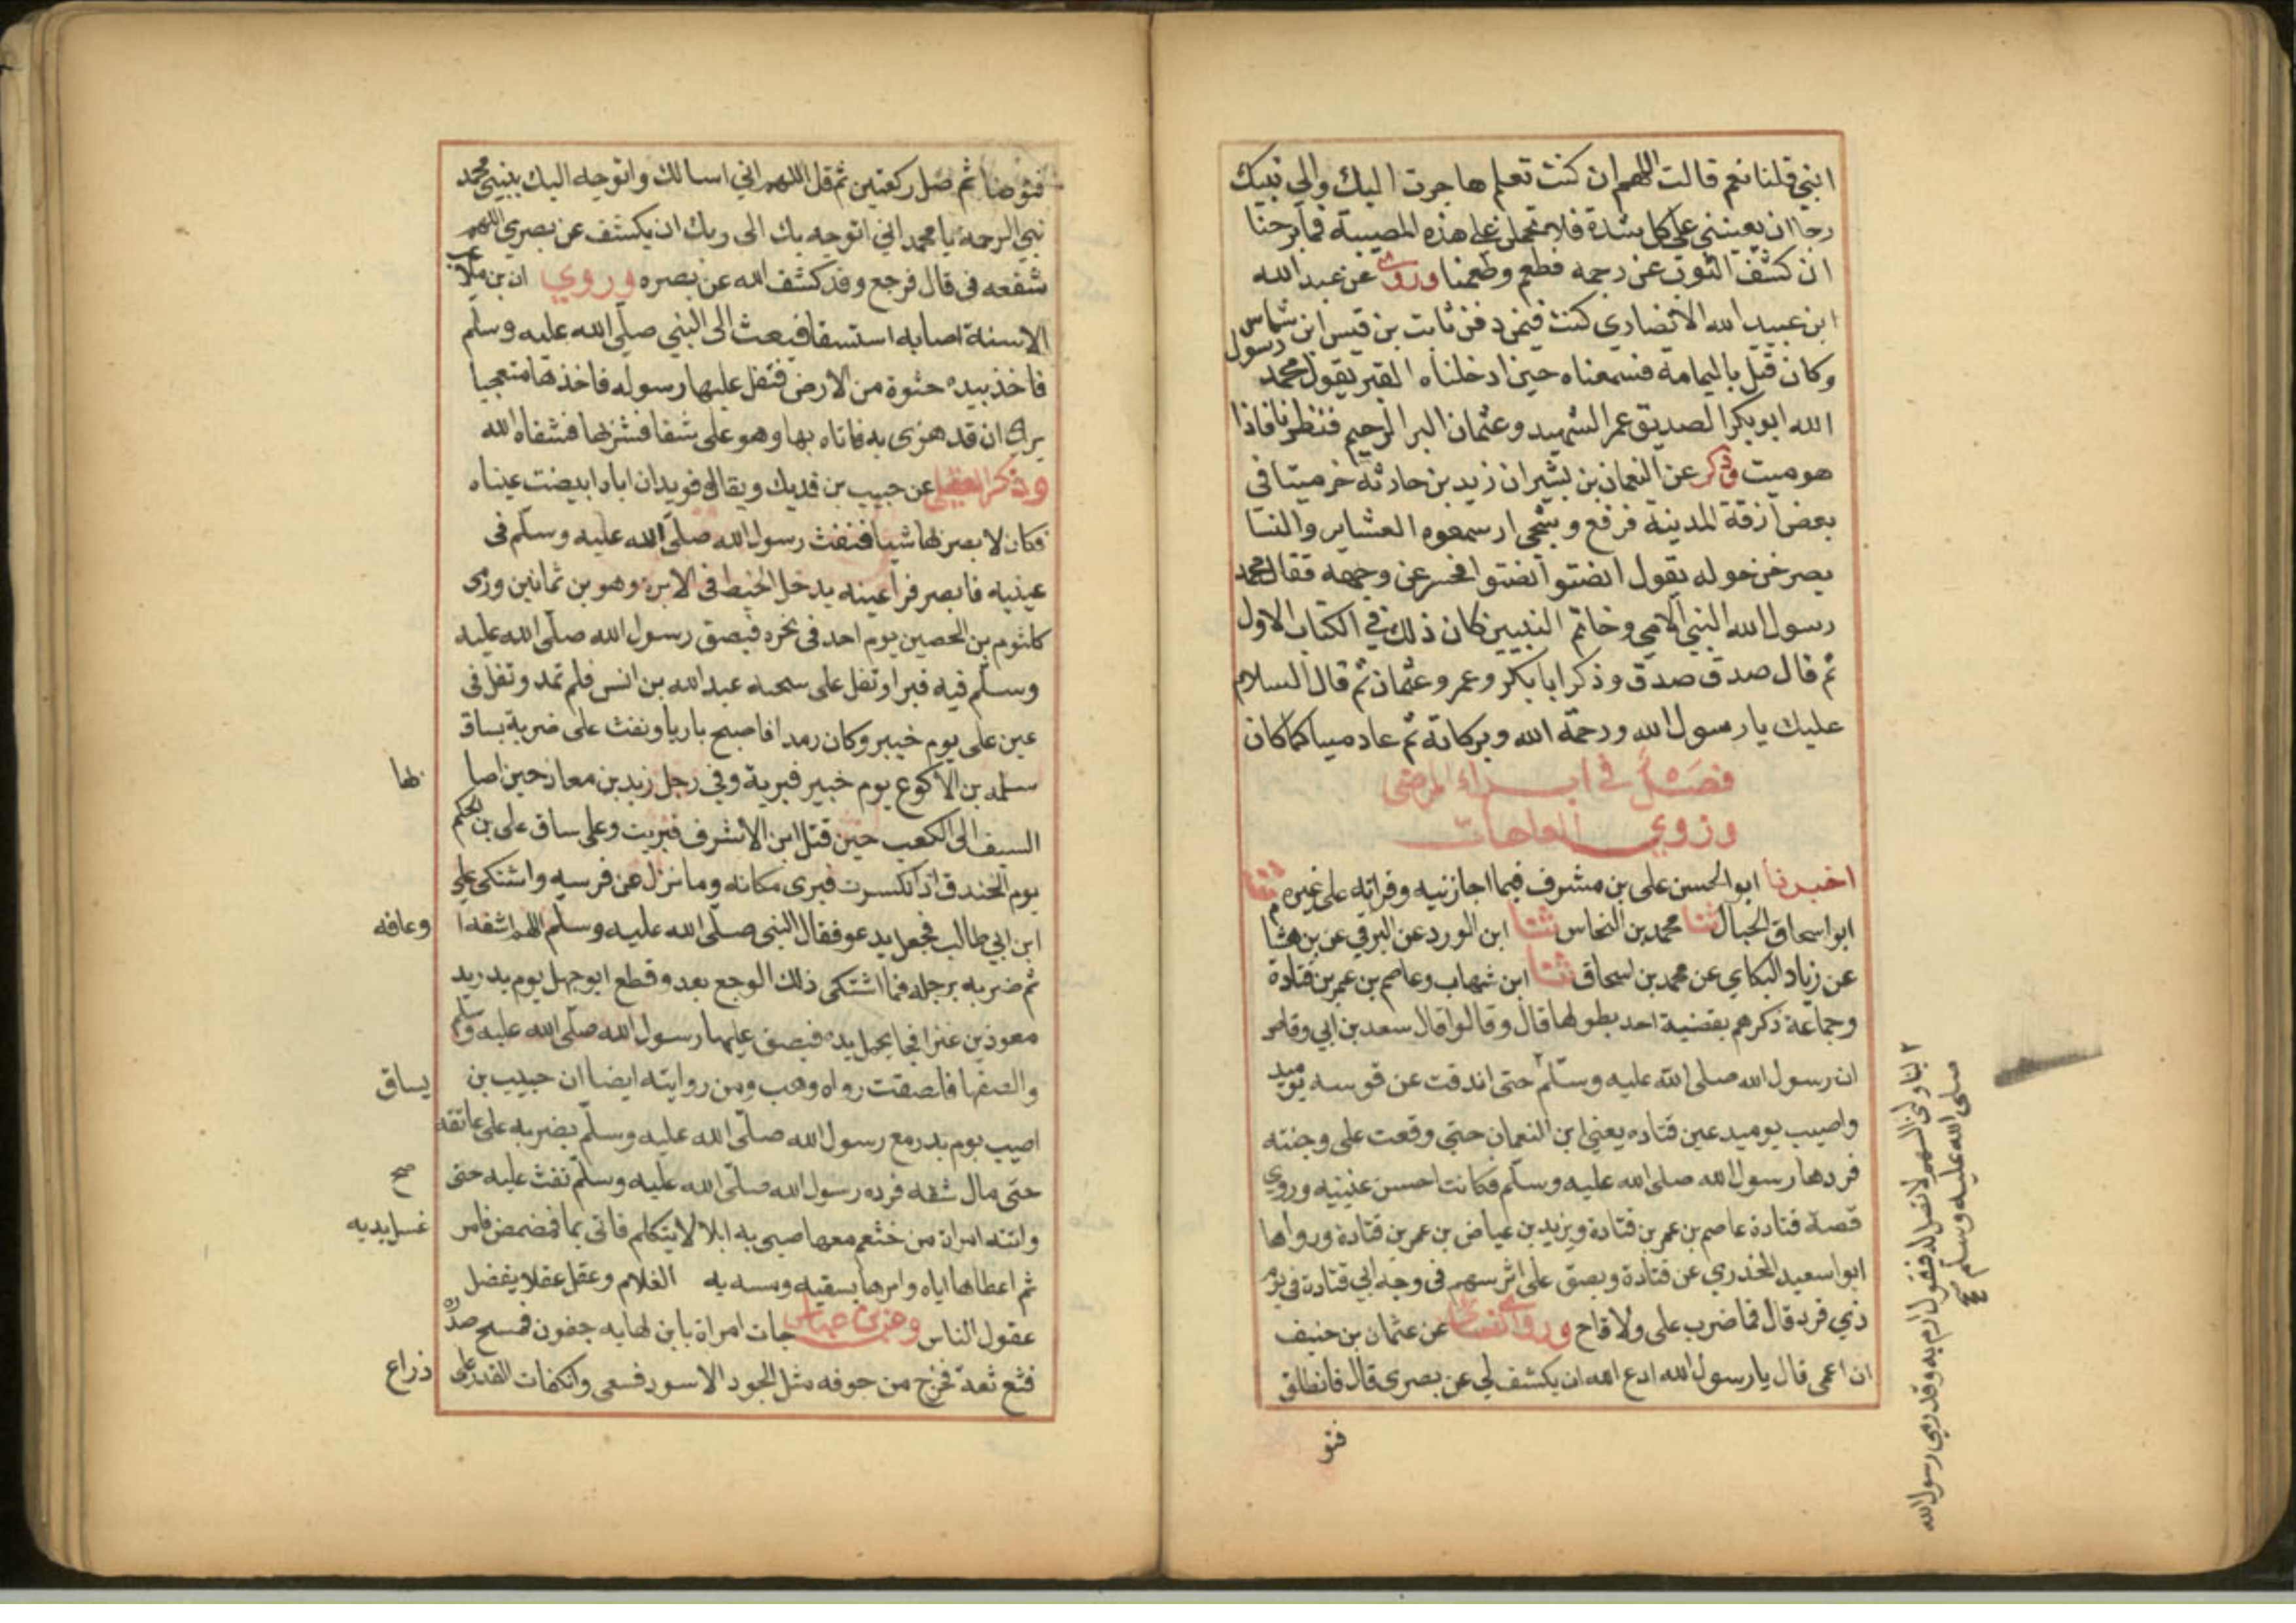 ابني قلنا نعم قالت اللهم ان كنت تعلم هاجرت اليك والي نبيك
رجا ان يعينني علي كل شدة فلا تحملن علي هذه المصيبة فما برحنا
ان كشف الثوب عن وجهه فطعم وطعمنا وروي عن عبد الله
ابن عبيد الله الانصاري كنت فيمن دفن ثابت بن قيس ابن شماس
وكان قتل باليمامة فسمعناه حين ادخلناه القبر يقول محمد رسول
الله ابو بكر الصديق عمر الشهيد وعثمان البر الرحيم فنظرنا فاذا
هو ميت وذكر عن النعمان بن بشير ان زيد بن حارثة خر ميتا في
بعض ازقة المدينة فرفع وسجي اذ سمعوه العشاين والنسا
يصرخن حوله يقول انصتوا انصتوا فحسر عن وجهه فقال محمد
رسول الله النبي الامي وخاتم النبيين كان ذلك في الكتاب الاول
ثم قال صدق صدق وذكر ابا بكر وعمر وعثمان ثم قال السلام
عليك يا رسول الله ورحمة الله وبركاته ثم عاد ميتا كما كان
فصل في ابراء المرضى
وذوي العاهات
اخبرنا ابو الحسن علي بن مشرف فيما اجازنيه وقراته على غيره ثنا
ابو اسحاق الحبال ثنا محمد بن النحاس ثنا ابن الورد عن البرقي عن بن هشام
عن زياد البكاي عن محمد بن اسحاق ثنا ابن شهاب وعاصم بن عمر بن قتادة
وجماعة ذكرهم بقضية احد بطولها قال وقالوا قال سعد بن ابي وقاص
ان رسول الله صلى الله عليه وسلم حتى اندقت عن قوسه يوميد
واصيب يوميد عين قتاده يعني ابن النعمان حتى وقعت على وجنته
فردها رسول الله صلى الله عليه وسلم فكانت احسن عينيه وروي
قصة قتادة عاصم بن عمر بن قتادة ويزيد بن عياض بن عمر بن قتادة ورواها
ابو اسعيد الخدري عن قتادة وبصق على اثر سهم في وجه ابي قتادة في يوم
ذي قرد قال فما ضرب علي ولا قاح وروى النسائي عن عثمان بن حنيف
ان اعمى قال يا رسول الله ادع الله ان يكشف لي عن بصري قال فانطلق
فتو
ليناولني السهم لا نصل له فيقول ارم به وقد رمي رسول الله
صلى الله عليه وسلم صح
فتوضا ثم صل ركعتين ثم قل اللهم اني اسالك واتوجه اليك بنبيي محمد
نبي الرحمة يا محمد اني اتوجه بك الى ربك ان يكشف عن بصري اللهم
شفعه في قال فرجع وقد كشف الله عن بصره وروي ان بن ملاعب
الاسنة اصابه استسقا فبعث الى النبي صلى الله عليه وسلم
فاخذ بيده حثوة من الارض فتفل عليها رسوله فاخذها متعجبا
يرى ان قد هزى به فاتاه بها وهو على شفا فشربها فشفاه الله
وذكر العقيلي عن حبيب بن فديك ويقال فويد ان اباه ابيضت عيناه
فكان لا يبصر بهما شيا فنفث رسول الله صلى الله عليه وسلم في
عينيه فابصر فراعينه يدخل الخيط في الابرة وهو بن ثمانين ورمى
كلثوم بن الحصين يوم احد في نحره فبصق رسول الله صلى الله عليه
وسلم فيه فبرا وتفل على شجة عبد الله بن انس فلم تمد وتفل في
عين علي يوم خيبر وكان رمدا فاصبح باريا ونفث على ضربة بساق
سلمه بن الاكوع يوم خيبر فبرية وفي رجل زيد بن معاذ حين اصا بها
السيف الى الكعب حين قتل ابن الاشرف فبريت وعلى ساق علي بن الحكم
يوم الخندق اذ انكسرت فبرى مكانه وما نزل عن فرسه واشتكى علي
ابن ابي طالب فجعل يدعو فقال النبي صلى الله عليه وسلم اللهم اشفه ا وعافه
ثم ضربه برجله فما اشتكى ذلك الوجع بعد وقطع ابو جهل يوم بدر يد
معوذ بن عفرا فجا يحمل يده فبصق عليها رسول الله صلى الله عليه وسلم
والصقها فلصقت رواه وهب ومن روايته ايضا ان حبيب بن يساق
اصيب يوم بدر مع رسول الله صلى الله عليه وسلم بضربه على عاتقه
حتى مال شقه فرده رسول الله صلى الله عليه وسلم نفث عليه حتى صح
واتته امراة من خثعم معها صبي به ابلا لا يتكلم فاتي بما فمضمض فامر غسل يديه
ثم اعطاها اياه وامرها بسقيه ومسه به الغلام وعقل عقلا يفضل
عقول الناس وعن بن عباس جات امراة بابن لها به جنون فمسح صدره
فثع ثعة فخرج من جوفه مثل الجرو الاسود فسعى وانكفات القدر على ذراع